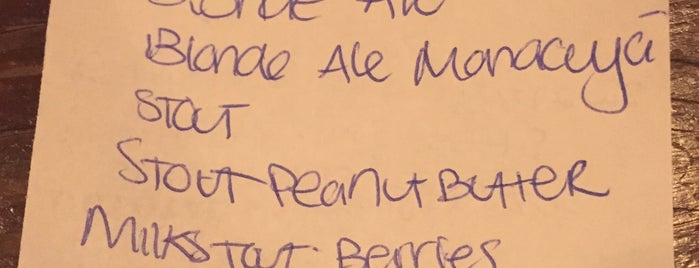 Blonde Ale
Blonde Ale Maracuyá
Stout
Stout Peanut Butter
Milkstout Berries